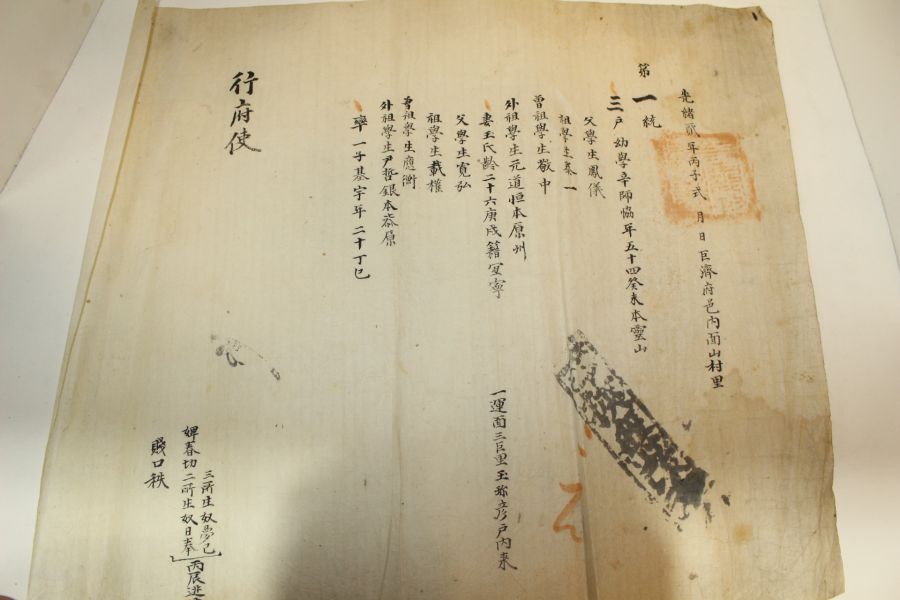 光緒貳年丙子式 月 日 巨濟府邑內面山村里
第一統
三戶 幼學辛師協年五十四癸未本靈山
父學生鳳儀
祖學生泰一
曾祖學生敬中
外祖學生元道恒本原州
妻玉氏齡二十六庚戌籍宜寧
一運面三巨里玉 彦戶內來
父學生寬弘
祖學生載權
曾祖學生應衡
外祖學生尹哲銀本㳓原
率一子基宇年二十丁巳
行府使
三所生奴夢巳
婢春切二所生奴日奉 丙辰逃
賤口秩